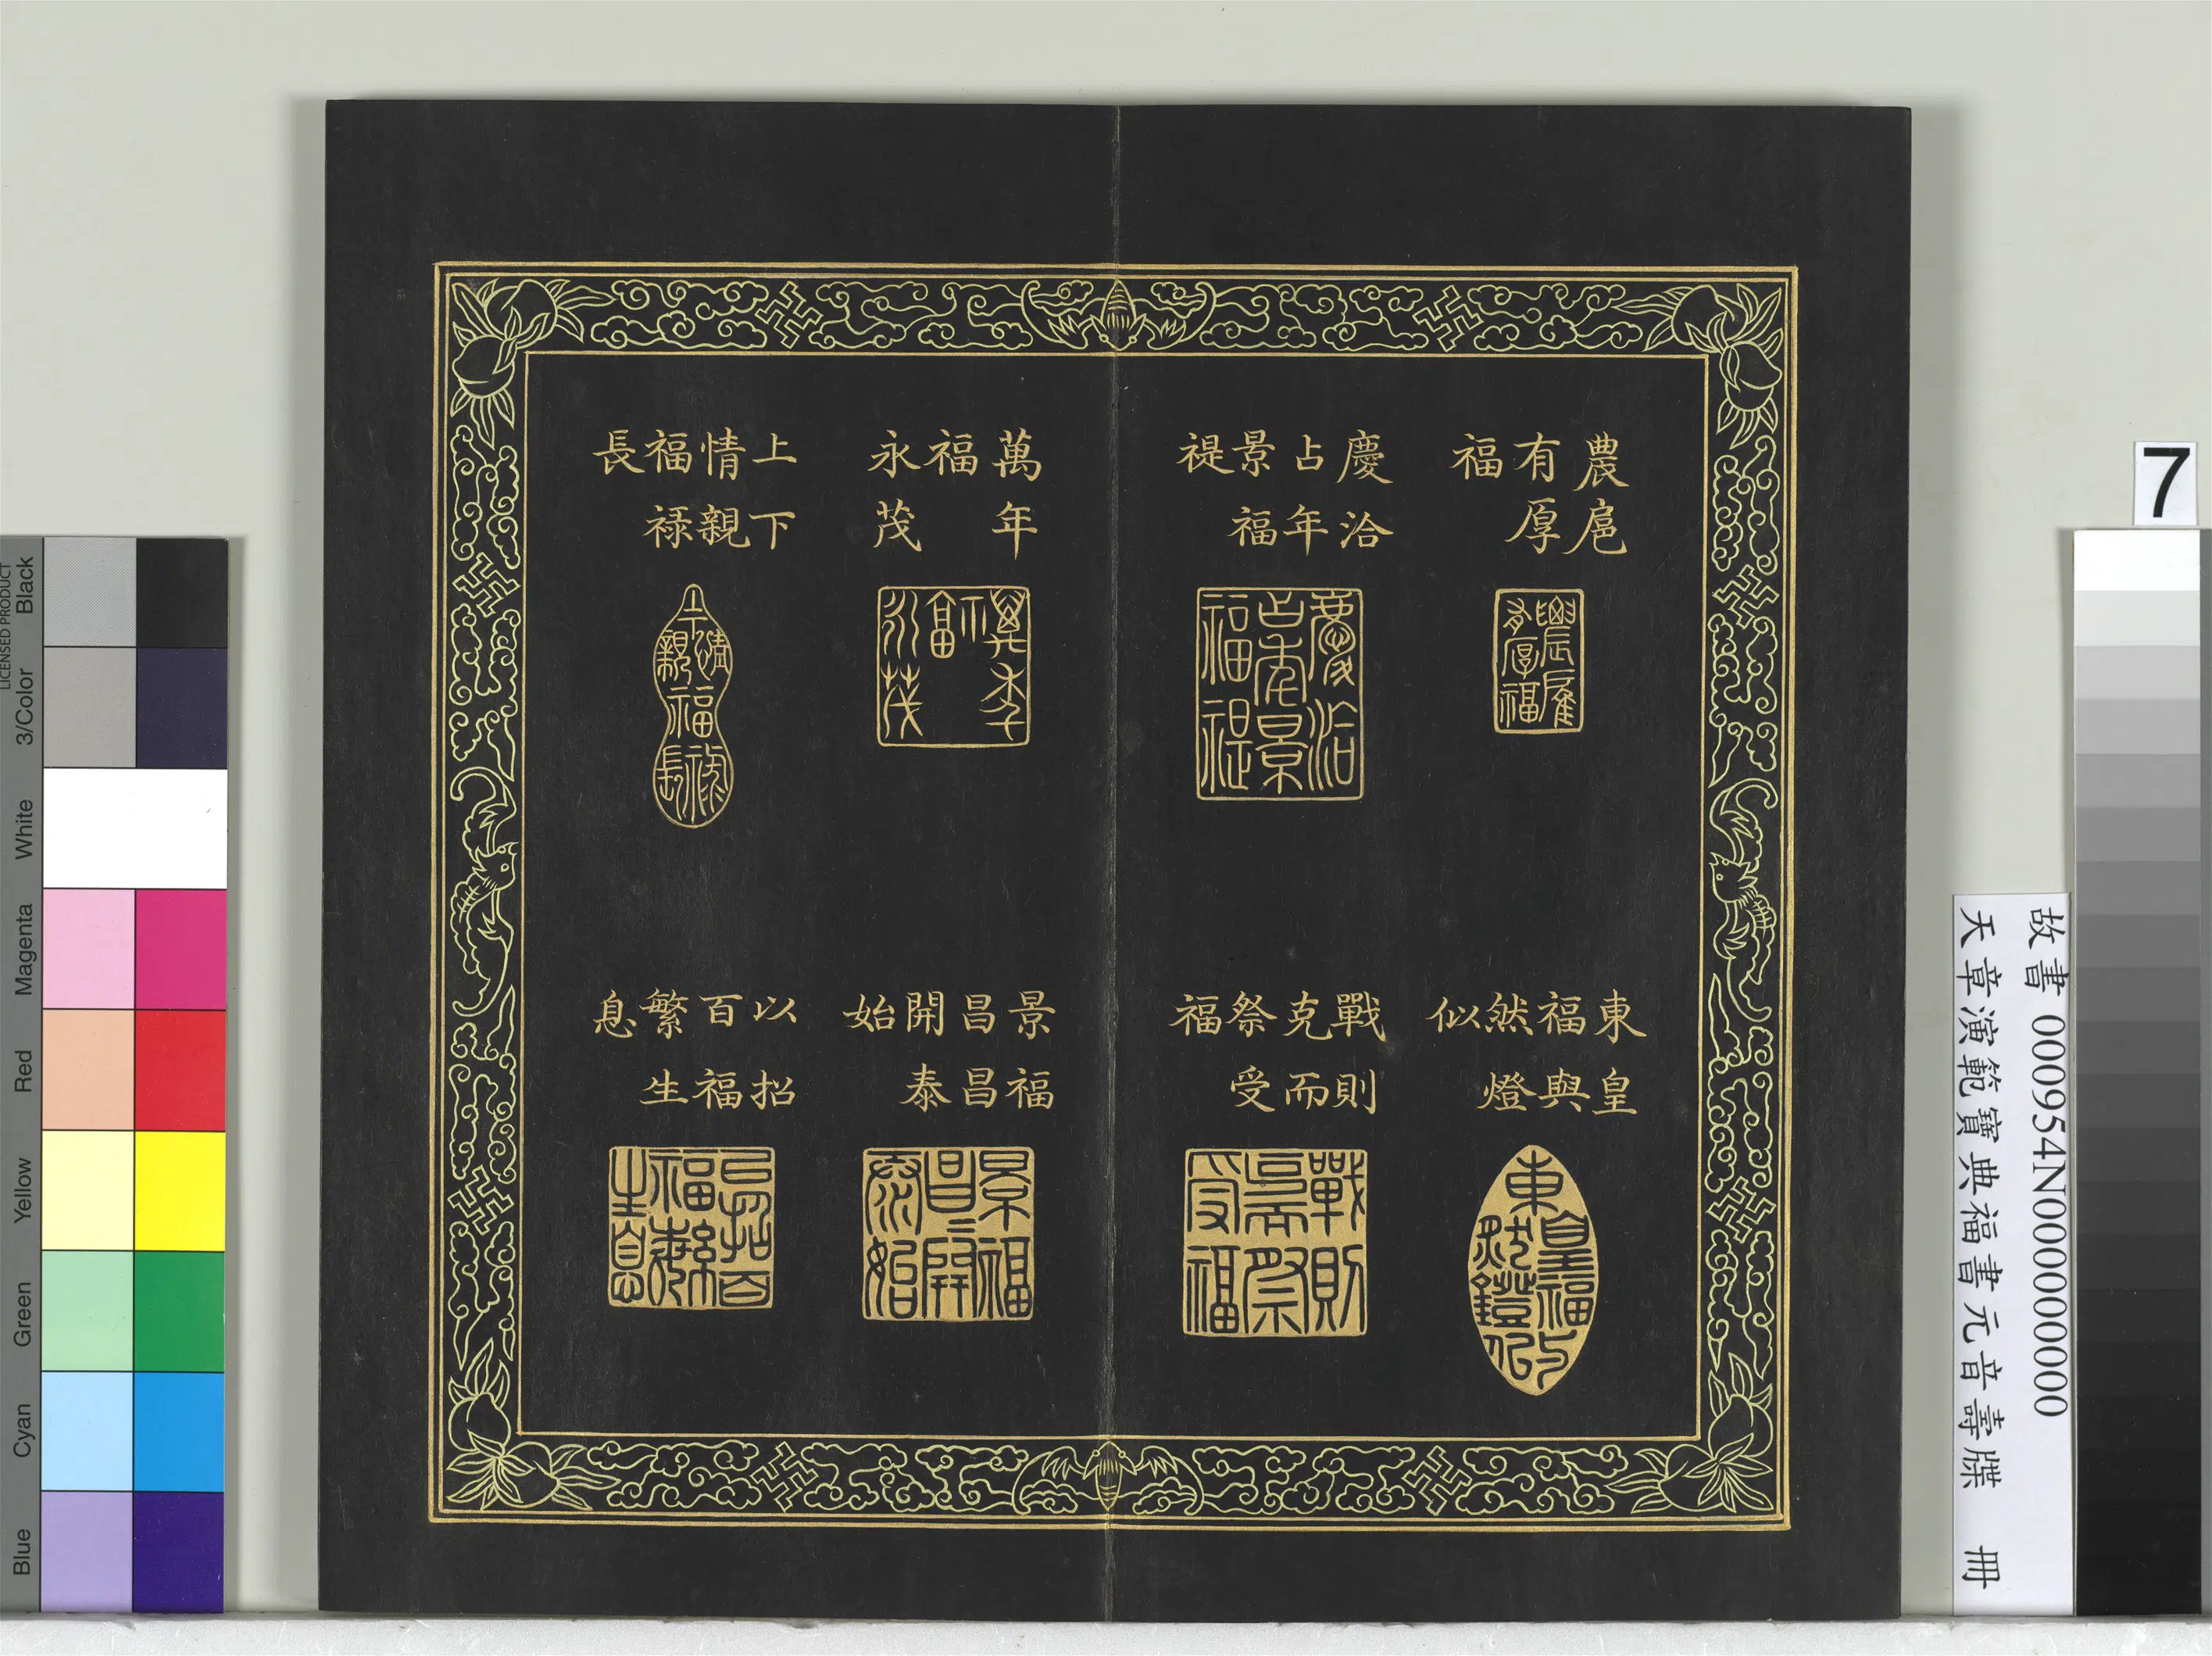 農扈
有厚
福
慶洽
占年
景福
禔
萬年
福
永茂
上下
情親
福祿
長
東皇
福與
然燈
似
戰則
克而
祭受
福
景福
昌昌
開泰
始
以招
百福
繁生
息
7
故書 000954N000000000
天章演範寶典福書元音壽牒 冊
Black
3/Color
White
Magenta
Red
Yellow
Green
Cyan
Blue
LICENSED PRODUCT